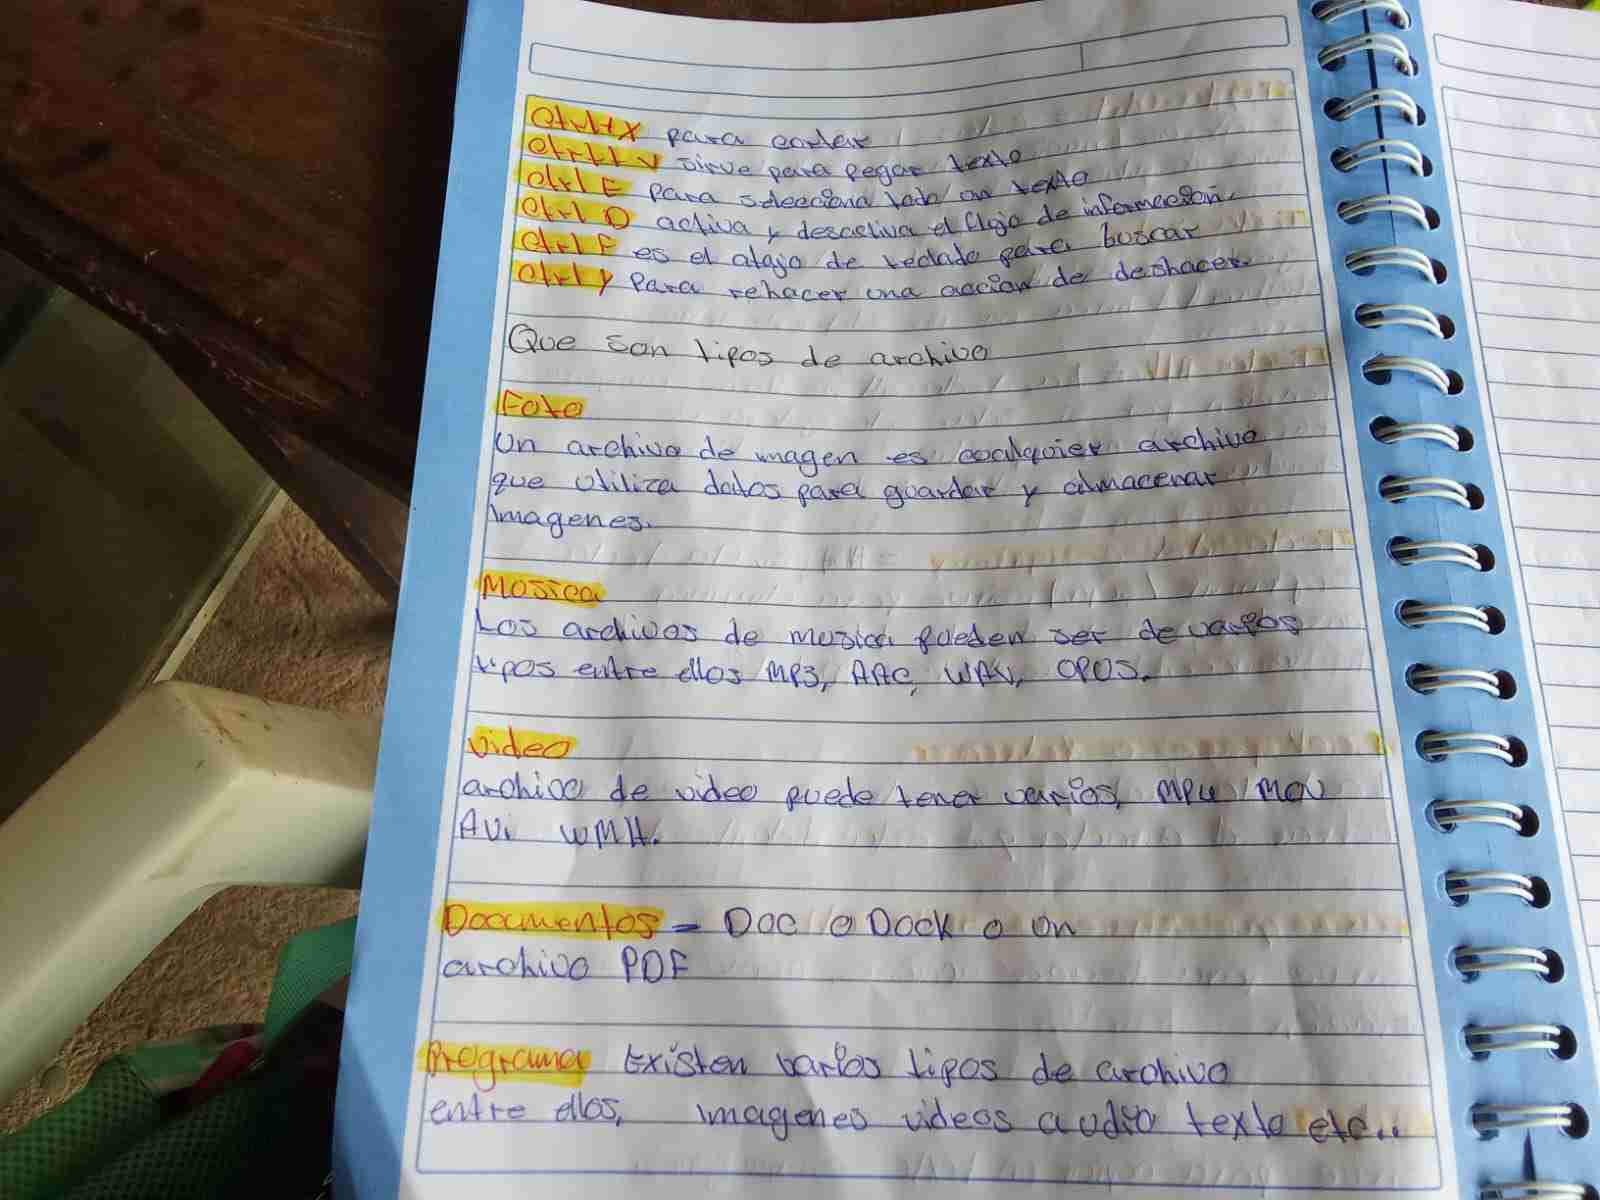 Ctrl+X para cortar
Ctrl+V sirve para pegar texto
Ctrl E para selecciona todo un texto
Ctrl Q activa y desactiva el flujo de información.
Ctrl F es el atajo de teclado para buscar
Ctrl y Para rehacer una acción de deshacer.
Que son tipos de archivo
Foto
Un archivo de imagen es cualquier archivo
que utiliza datos para guardar y almacenar
imagenes.
Mosica
Los archivos de musica pueden ser de varios
tipos entre ellos MP3, AAC, WAV, OPUS.
video
archivo de video puede tener varios, MP4 MOV
AVi WMH.
Documentos = Doc o Dock o un
archivo PDF
Programa Existen varios tipos de archivo
entre ellos, imagenes videos audio texto etc..